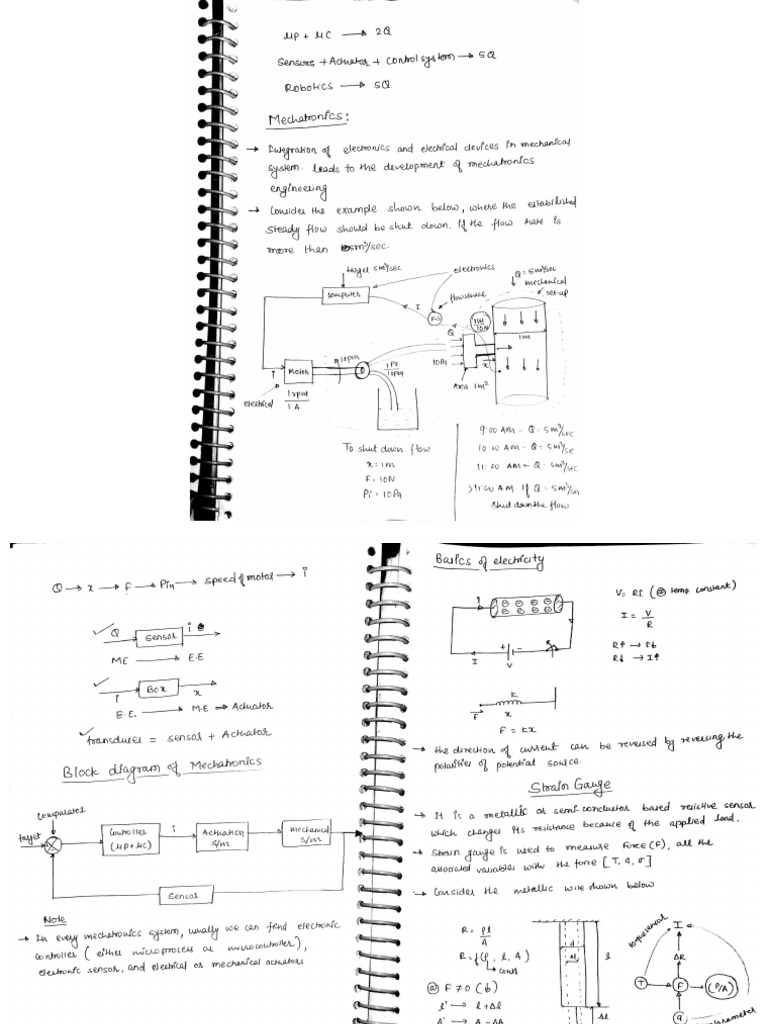 μP + μC → 2Q
Sensors + Actuator + control system → 5Q
Robotics → 5Q
Mechatronics:
→ Integration of electronics and electrical devices in mechanical
system. leads to the development of mechatronics
engineering
→ Consider the example shown below, where the established
steady flow should be shut down, if the flow rate is
more than 5m³/sec.
target 5m³/sec
electronics
Q = 5m³/sec
mechanical
set-up
computer
I
flow sensor
1M
10N
Q
1m
10rpm
i
Motor
1Pa
1rpm
10Pa
x
Area 1m²
electrical
1rpm
1A
To shut down flow
x = 1m
F = 10N
Pi = 10Pa
9:00 AM - Q = 5m³/sec
10:00 AM - Q = 5m³/se
11:00 AM - Q = 5m³/sec
>11:00 AM if Q = 5m³/
shut down the flow
Q → x → F → Pin → speed of motor → i
Q Sensor i
ME → E.E
i Box x
E.E. → M.E → Actuator
transducer = sensor + Actuator
Block diagram of Mechatronics
comparator
target
controller
(μP+μC)
i
Actuation
s/m
mechanical
s/m
Sensor
Note
→ In every mechatronics system, usually we can find electronic
controller (either microprocess or microcontroller),
electronic sensor, and electrical or mechanical actuators
Basics of electricity
I
+ -
I V
V = RI (@ temp constant)
I = V/R
R↑ → I↓
R↓ → I↑
k
F x
F = kx
→ the direction of current can be reversed by reversing the
polarities of potential source.
Strain Gauge
→ It is a metallic or semi-conductor based resistive sensor
which changes its resistance because of the applied load.
→ Strain gauge is used to measure force (F), all the
associated variables with the force [T, a, σ]
→ Consider the metallic wire shown below
R = ρl/A
R = f(ρ, l, A)
const
@ F≠0 (b)
l' → l+Δl
A' → A-ΔA
d
l
Δl
I
ΔR
T
F
(P/A)
a